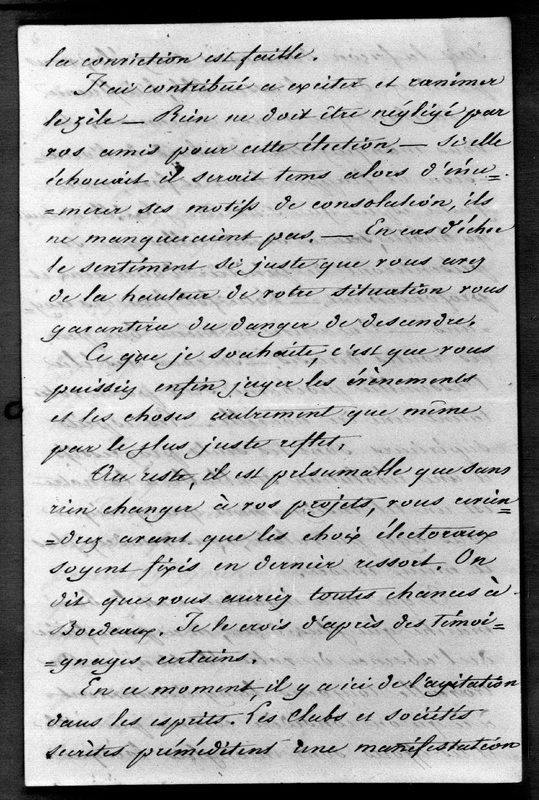 la conviction est faille.
J'ai contribué a exciter et ranimer
le zèle — Rien ne doit être négligé par
vos amis pour cette élection — si elle
échouait il serait tems alors d'énu-
=merer ses motifs de consolation, ils
ne manqueraient pas. — En cas d'échec
le sentiment si juste que vous avez
de la hauteur de votre situation vous
garantira du danger de descendre.
Ce que je souhaite, c'est que vous
puissiez enfin juger les évènements
et les choses autrement que même
par le plus juste reflet.
Au reste, il est présumable que sans
rien changer à vos projets, vous revien=
=drez avant que les choix électoraux
soyent fixés en dernier ressort. On
dit que vous auriez toutes chances à
Bordeaux. Je le crois d'après des témoi=
=gnages certains.
En ce moment, il y a ici de l'agitation
dans les esprits. Les Clubs et sociétés
secrètes préméditent une manifestation